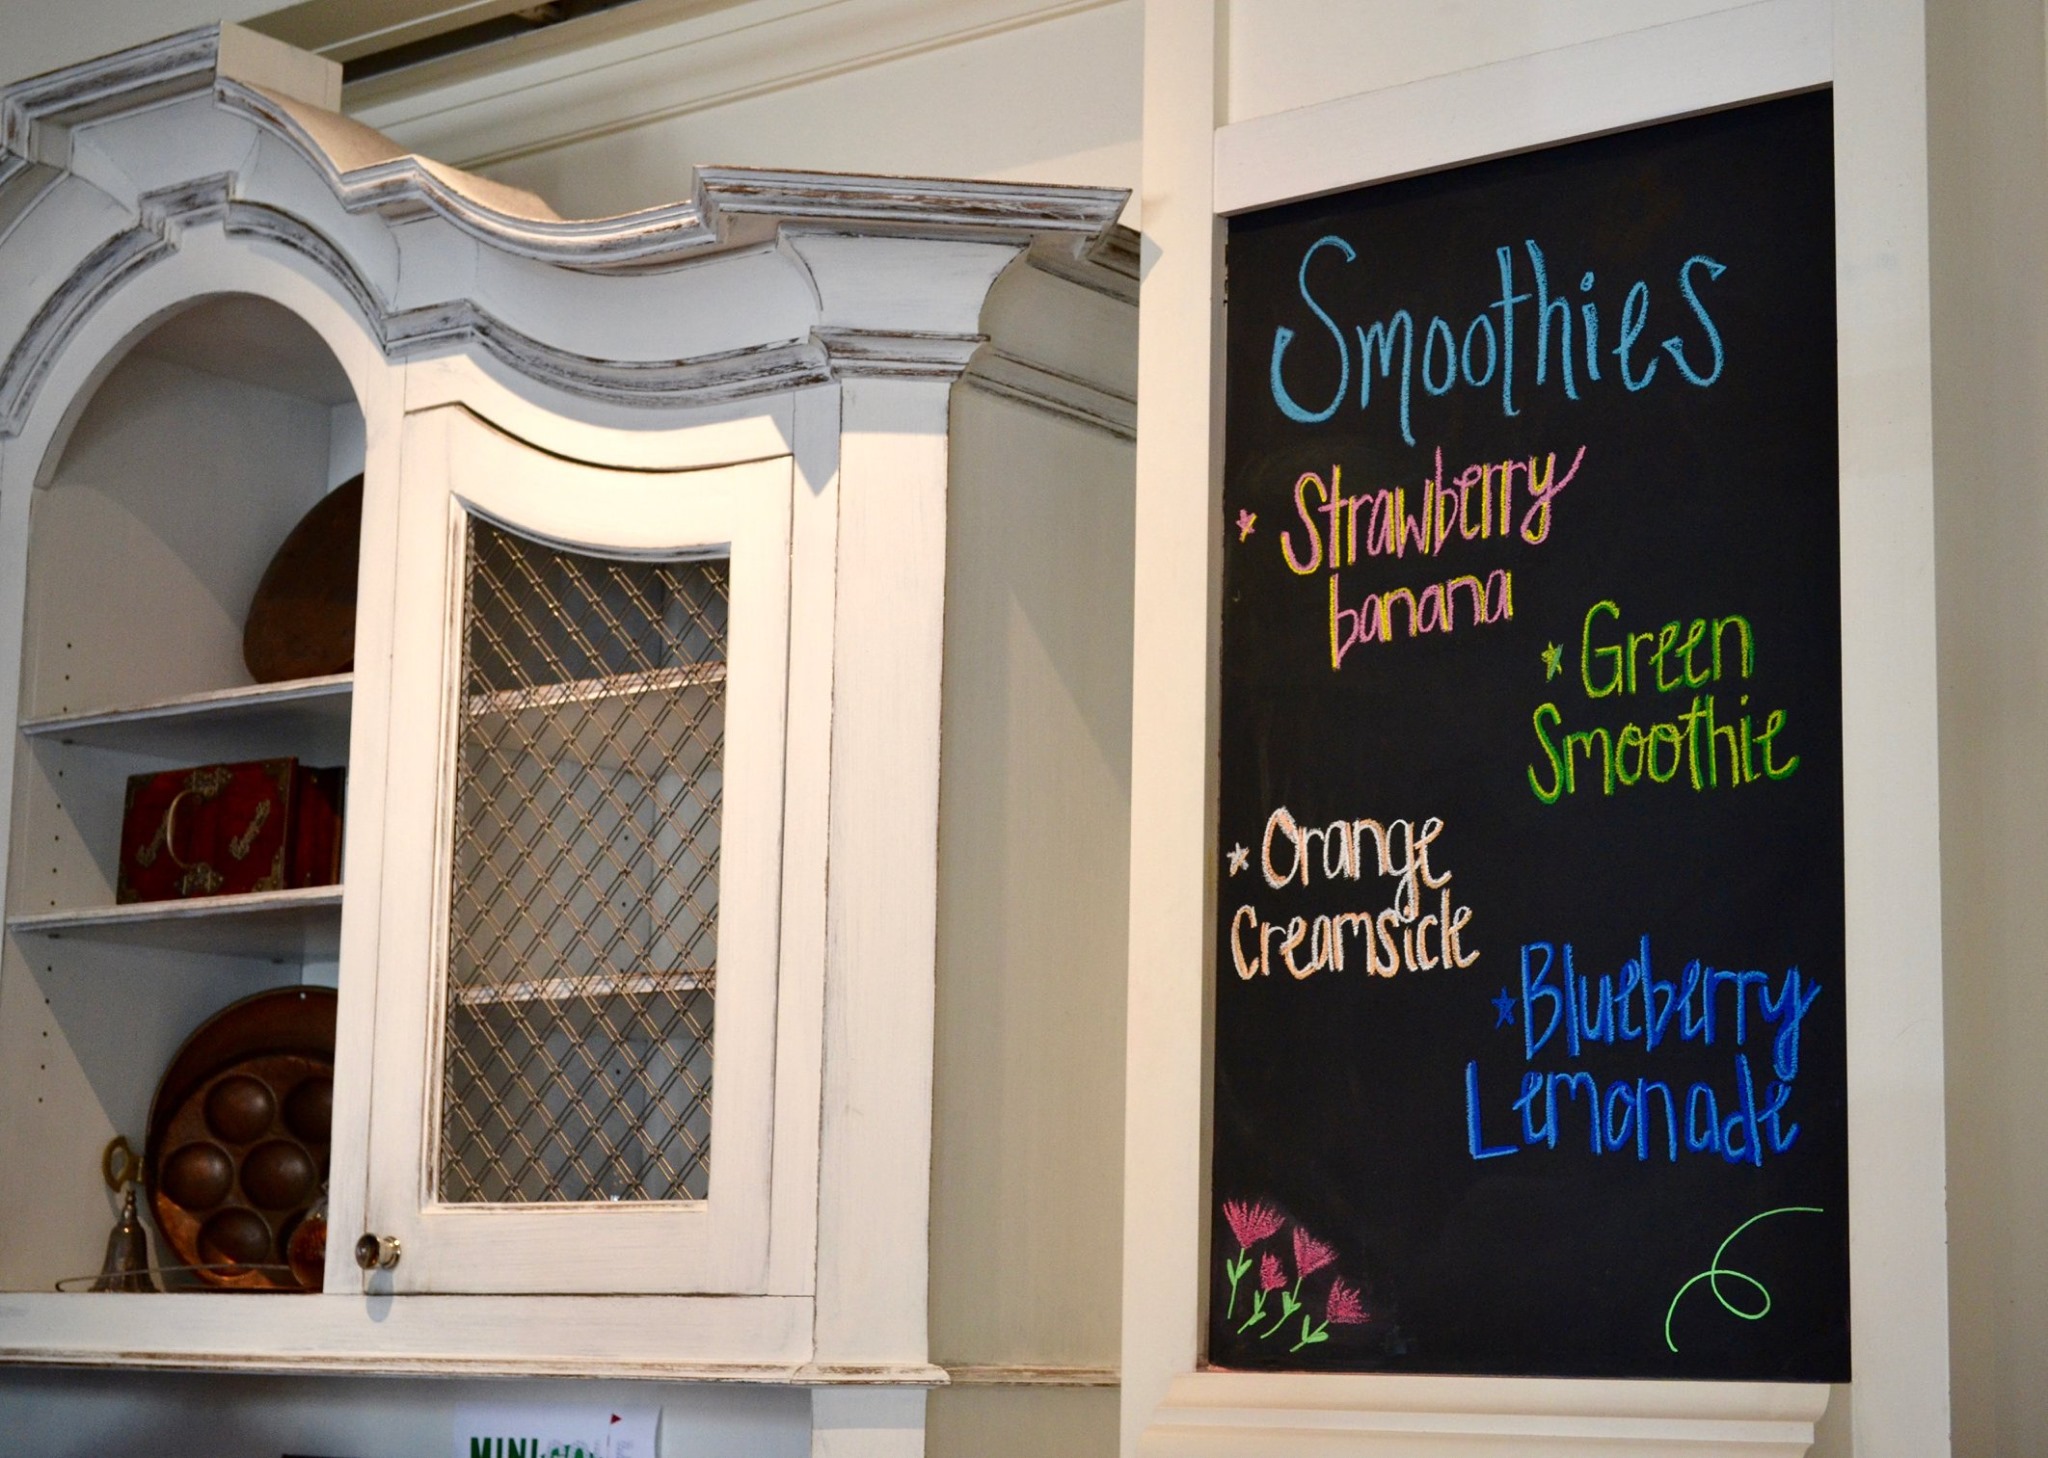 Smoothies
Strawberry
banana
Green
Smoothie
Orange
Creamsicle
Blueberry
Lemonade
MINI